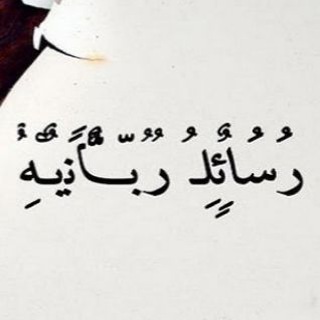 رسائل ربّانية